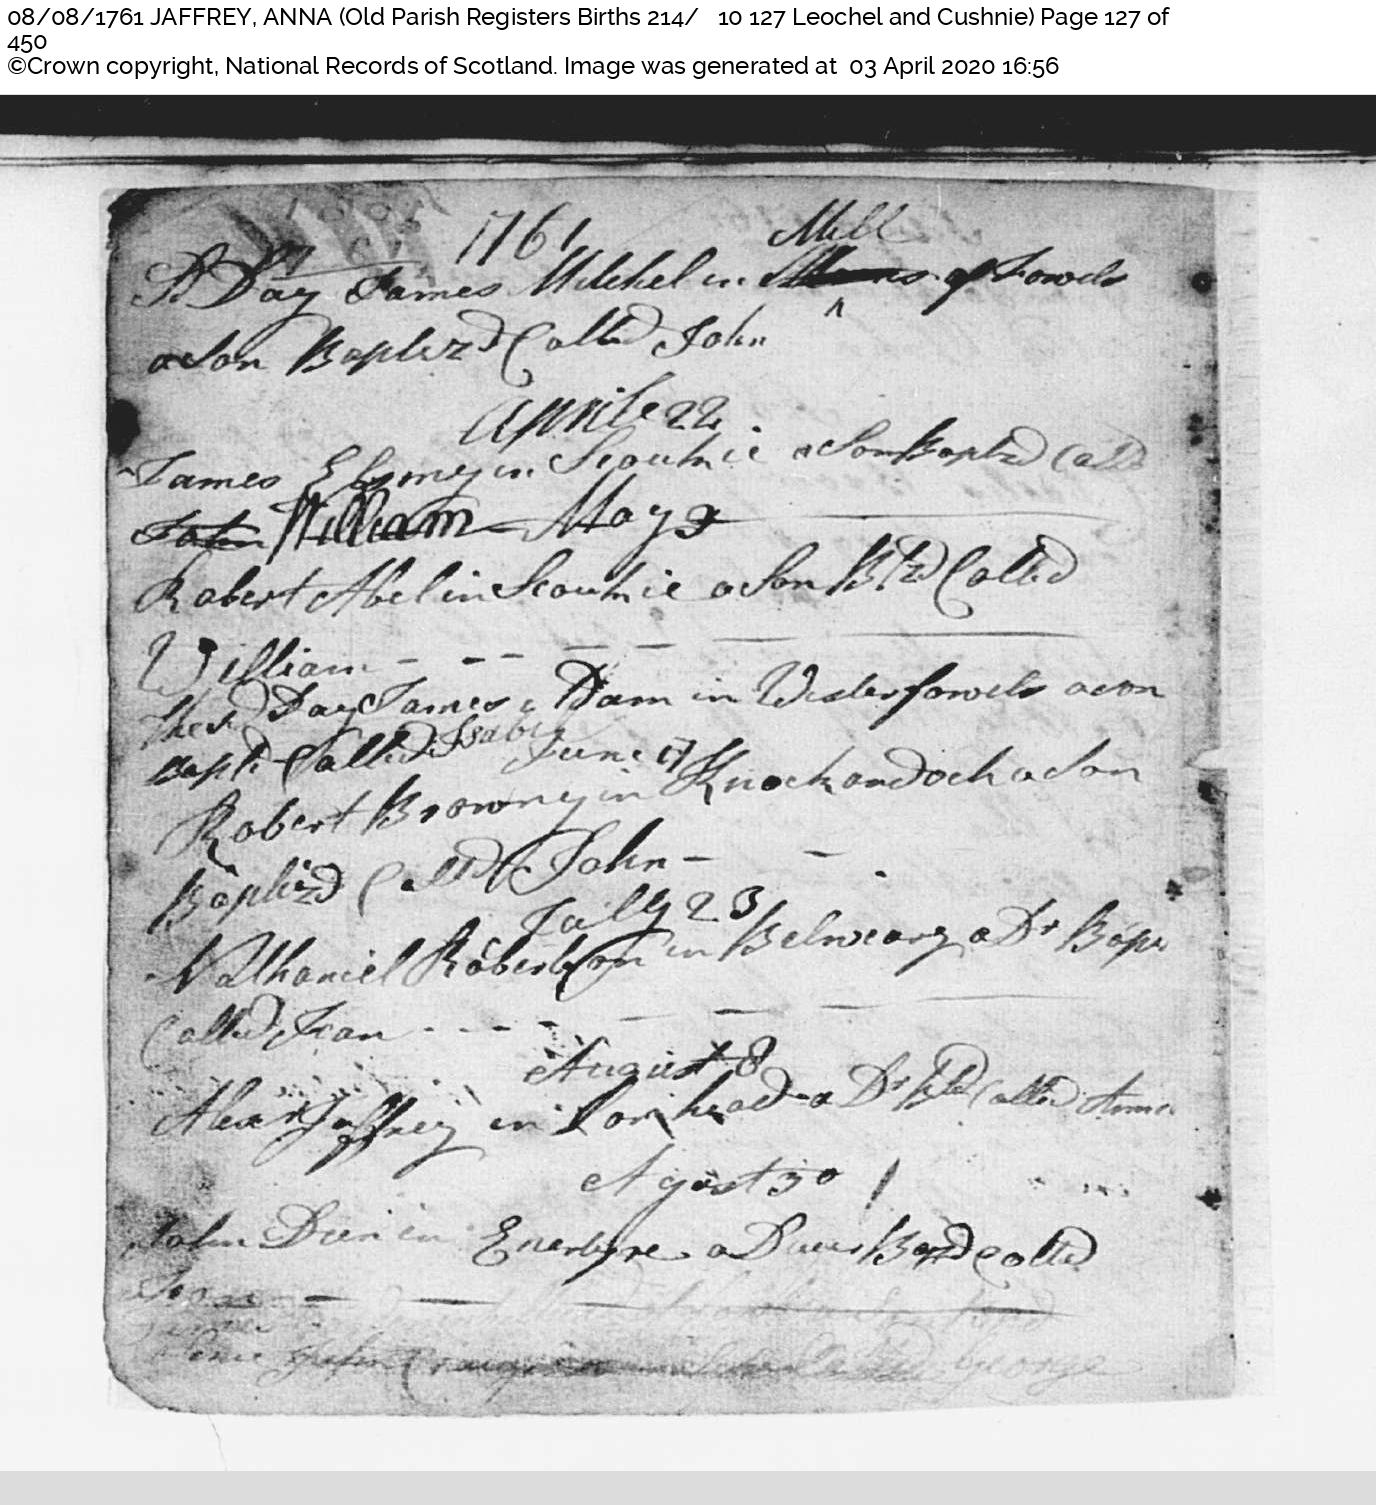 08/08/1761 JAFFREY, ANNA (Old Parish Registers Births 214/   10 127 Leochel and Cushnie) Page 127 of
450
©Crown copyright, National Records of Scotland. Image was generated at  03 April 2020 16:56
1761
Mill
Day James Mitchel in of Fowels
a Son Baptizd Called John
Aprile 22
James Elsmey in Scouthie a Son Baptzd Calld
John William May 3
Robert Abel in Scouthie a Son Btzd Called
William
The sd Day James Dam in Westerfowels a son
Bapti Called Isabel
June 17
Robert Browny in Knockandoch a Son
Baptizd Calld John
Jully 23
Nathaniel Robertson in a Dr Bapt
Called Jean
August 8
Alexr Jaffrey in a Dr Called Anna
Agust 30
John in Enertyre a Bapzd Called
Jean
John Craig George